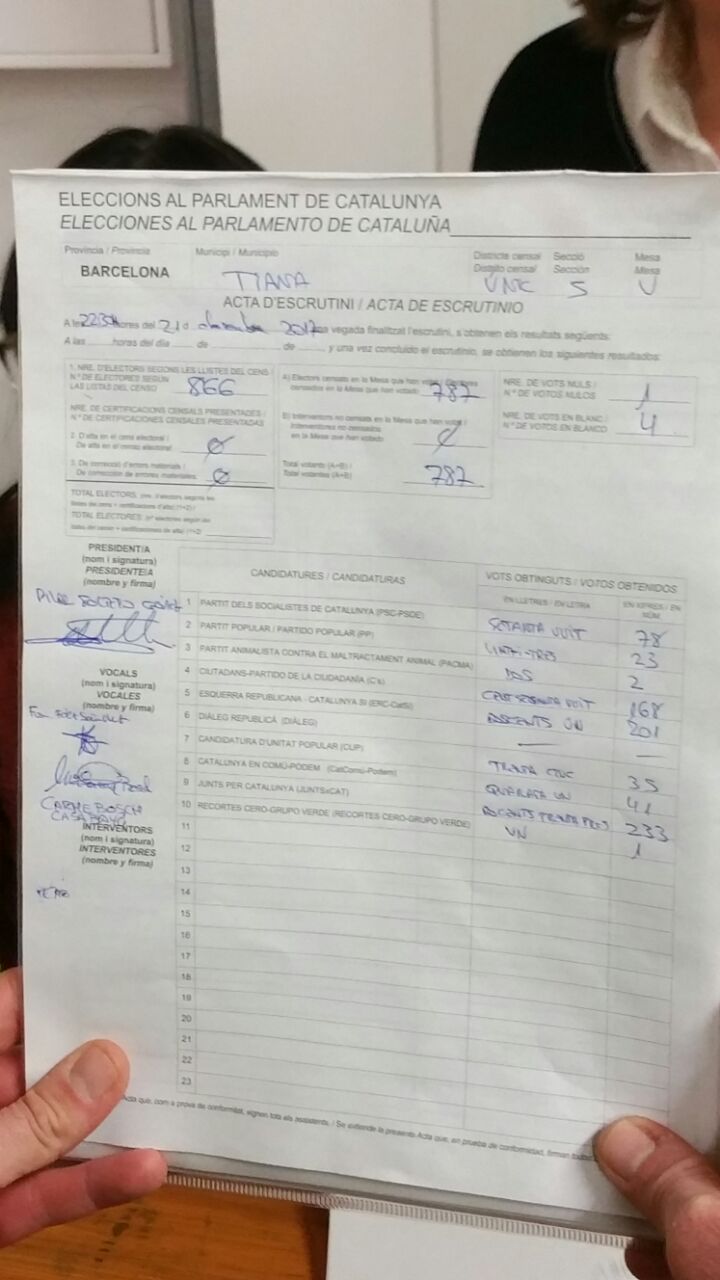 ELECCIONS AL PARLAMENT DE CATALUNYA
ELECCIONES AL PARLAMENTO DE CATALUÑA
Província / Provincia Municipi / Municipio Districte censal Secció Mesa
Distrito censal Sección Mesa
BARCELONA TIANA 5 U
ACTA D'ESCRUTINI / ACTA DE ESCRUTINIO
A les hores del 21 d 2017 vegada finalitzat l'escrutini, s'obtenen els resultats següents:
A las horas del día de de , y una vez concluido el escrutinio, se obtienen los siguientes resultados:
1. NRE. D'ELECTORS SEGONS LES LLISTES DEL CENS /
N.º DE ELECTORES SEGÚN
LAS LISTAS DEL CENSO 866
NRE. DE CERTIFICACIONS CENSALS PRESENTADES /
N.º DE CERTIFICACIONES CENSALES PRESENTADAS
2. D'alta en el cens electoral /
De alta en el censo electoral 0
3. De correcció d'errors materials /
De corrección de errores materiales 0
TOTAL ELECTORS
TOTAL ELECTORES
A) Electors censats en la Mesa que han votat /
censados en la Mesa que han votado 787
B) Interventors no censats en la Mesa que han votat /
Interventores no censados
en la Mesa que han votado 0
Total votants (A+B) /
Total votantes (A+B) 787
NRE. DE VOTS NULS /
N.º DE VOTOS NULOS 1
NRE. DE VOTS EN BLANC /
N.º DE VOTOS EN BLANCO 4
PRESIDENT/A
(nom i signatura)
PRESIDENTE/A
(nombre y firma)
VOCALS
(nom i signatura)
VOCALES
(nombre y firma)
CARME BOSCH
INTERVENTORS
(nom i signatura)
INTERVENTORES
(nombre y firma)
CANDIDATURES / CANDIDATURAS VOTS OBTINGUTS / VOTOS OBTENIDOS
EN LLETRES / EN LETRA EN XIFRES / EN NÚM.
1 PARTIT DELS SOCIALISTES DE CATALUNYA (PSC-PSOE) SETANTA VUIT 78
2 PARTIT POPULAR / PARTIDO POPULAR (PP) VINT-I-TRES 23
3 PARTIT ANIMALISTA CONTRA EL MALTRACTAMENT ANIMAL (PACMA) DOS 2
4 CIUTADANS-PARTIDO DE LA CIUDADANÍA (C's) CENT SEIXANTA VUIT 168
5 ESQUERRA REPUBLICANA - CATALUNYA SÍ (ERC-CatSí) DOSCENTS UN 201
6 DIÀLEG REPUBLICÀ (DIÀLEG) — —
7 CANDIDATURA D'UNITAT POPULAR (CUP) TRENTA CINC 35
8 CATALUNYA EN COMÚ-PODEM (CatComú-Podem) QUARANTA UN 41
9 JUNTS PER CATALUNYA (JUNTSxCAT) DOSCENTS TRENTA TRES 233
10 RECORTES CERO-GRUPO VERDE (RECORTES CERO-GRUPO VERDE) UN 1
11
12
13
14
15
16
17
18
19
20
21
22
23
Acta que, com a prova de conformitat, signen tots els assistents. / Se extiende la presente Acta que, en prueba de conformidad, firman